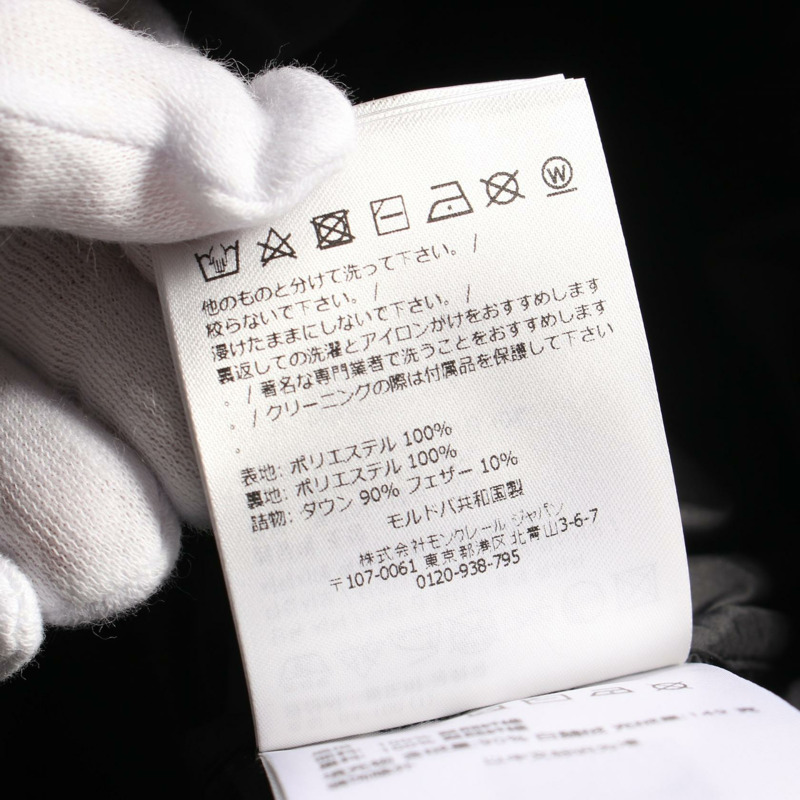 W
他のものと分けて洗って下さい。 /
絞らないで下さい。 /
浸けたままにしないで下さい。 /
裏返しての洗濯とアイロンがけをおすすめします
。 / 著名な専門業者で洗うことをおすすめします
。 / クリーニングの際は付属品を保護して下さい
。
表地: ポリエステル 100%
裏地: ポリエステル 100%
詰物: ダウン 90% フェザー 10%
モルドバ共和国製
株式会社モンクレール ジャパン
〒107-0061 東京都港区北青山3-6-7
0120-938-795